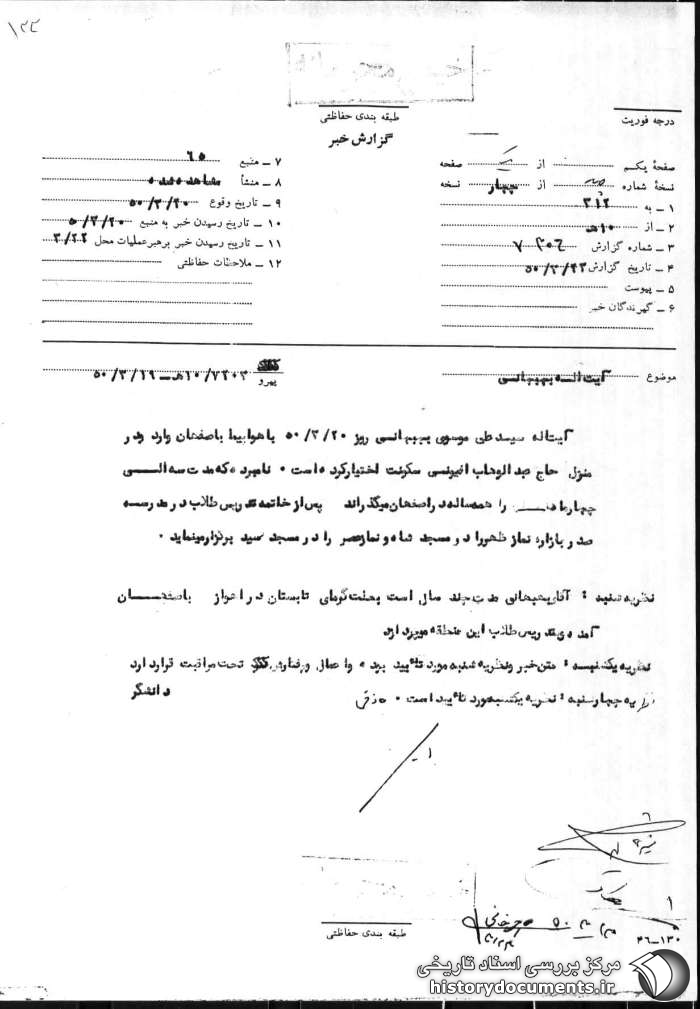 ۱۲۲
درجه فوریت
طبقه بندی حفاظتی
گزارش خبر
صفحهٔ یکم از صفحه
نسخهٔ شماره از چهار نسخه
۱ ـ به ۳۱۲
۲ ـ از ۱۰هـ
۳ ـ شماره گزارش
۴ ـ تاریخ گزارش
۵ ـ پیوست
۶ ـ گیرندگان خبر
۷ ـ منبع ۶۵
۸ ـ منشأ مشاهده شده
۹ ـ تاریخ وقوع ۵۰/۳/۲۰
۱۰ ـ تاریخ رسیدن خبر به منبع ۵۰/۳/۲۰
۱۱ ـ تاریخ رسیدن خبر برهبر عملیات محل ۳/۲۲
۱۲ ـ ملاحظات حفاظتی
موضوع آیت اله بهبهانی
پیرو ۱۰/۷۲۰۳هـ ـ ۵۰/۳/۱۹
آیت اله سید علی موسوی بهبهانی روز ۵۰/۳/۲۰ با هواپیما باصفهان وارد و در
منزل حاج عبدالوهاب سکونت اختیار کرده است ۰ نامبرده که مدت سه الی
چهار ماه را همه ساله در اصفهان میگذراند پس از خاتمه تدریس طلاب در مدرسه
صدر بازار نماز ظهر را در مسجد شاه و نماز عصر را در مسجد سید برگزار مینماید ۰
نظریه شنبه : آقای بهبهانی مدت چند سال است بعلت گرمای تابستان در اهواز باصفهان
آمده و بتدریس طلاب این منطقه میپردازد
نظریه یکشنبه : متن خبر و نظریه شنبه مورد تأیید بوده و اعمال و رفتارش تحت مراقبت قرار دارد
نظریه چهارشنبه : نظریه یکشنبه مورد تأیید است ۰
دانشگر
طبقه بندی حفاظتی
۴۶-۱۳۰
مرکز بررسی اسناد تاریخی
historydocuments.ir